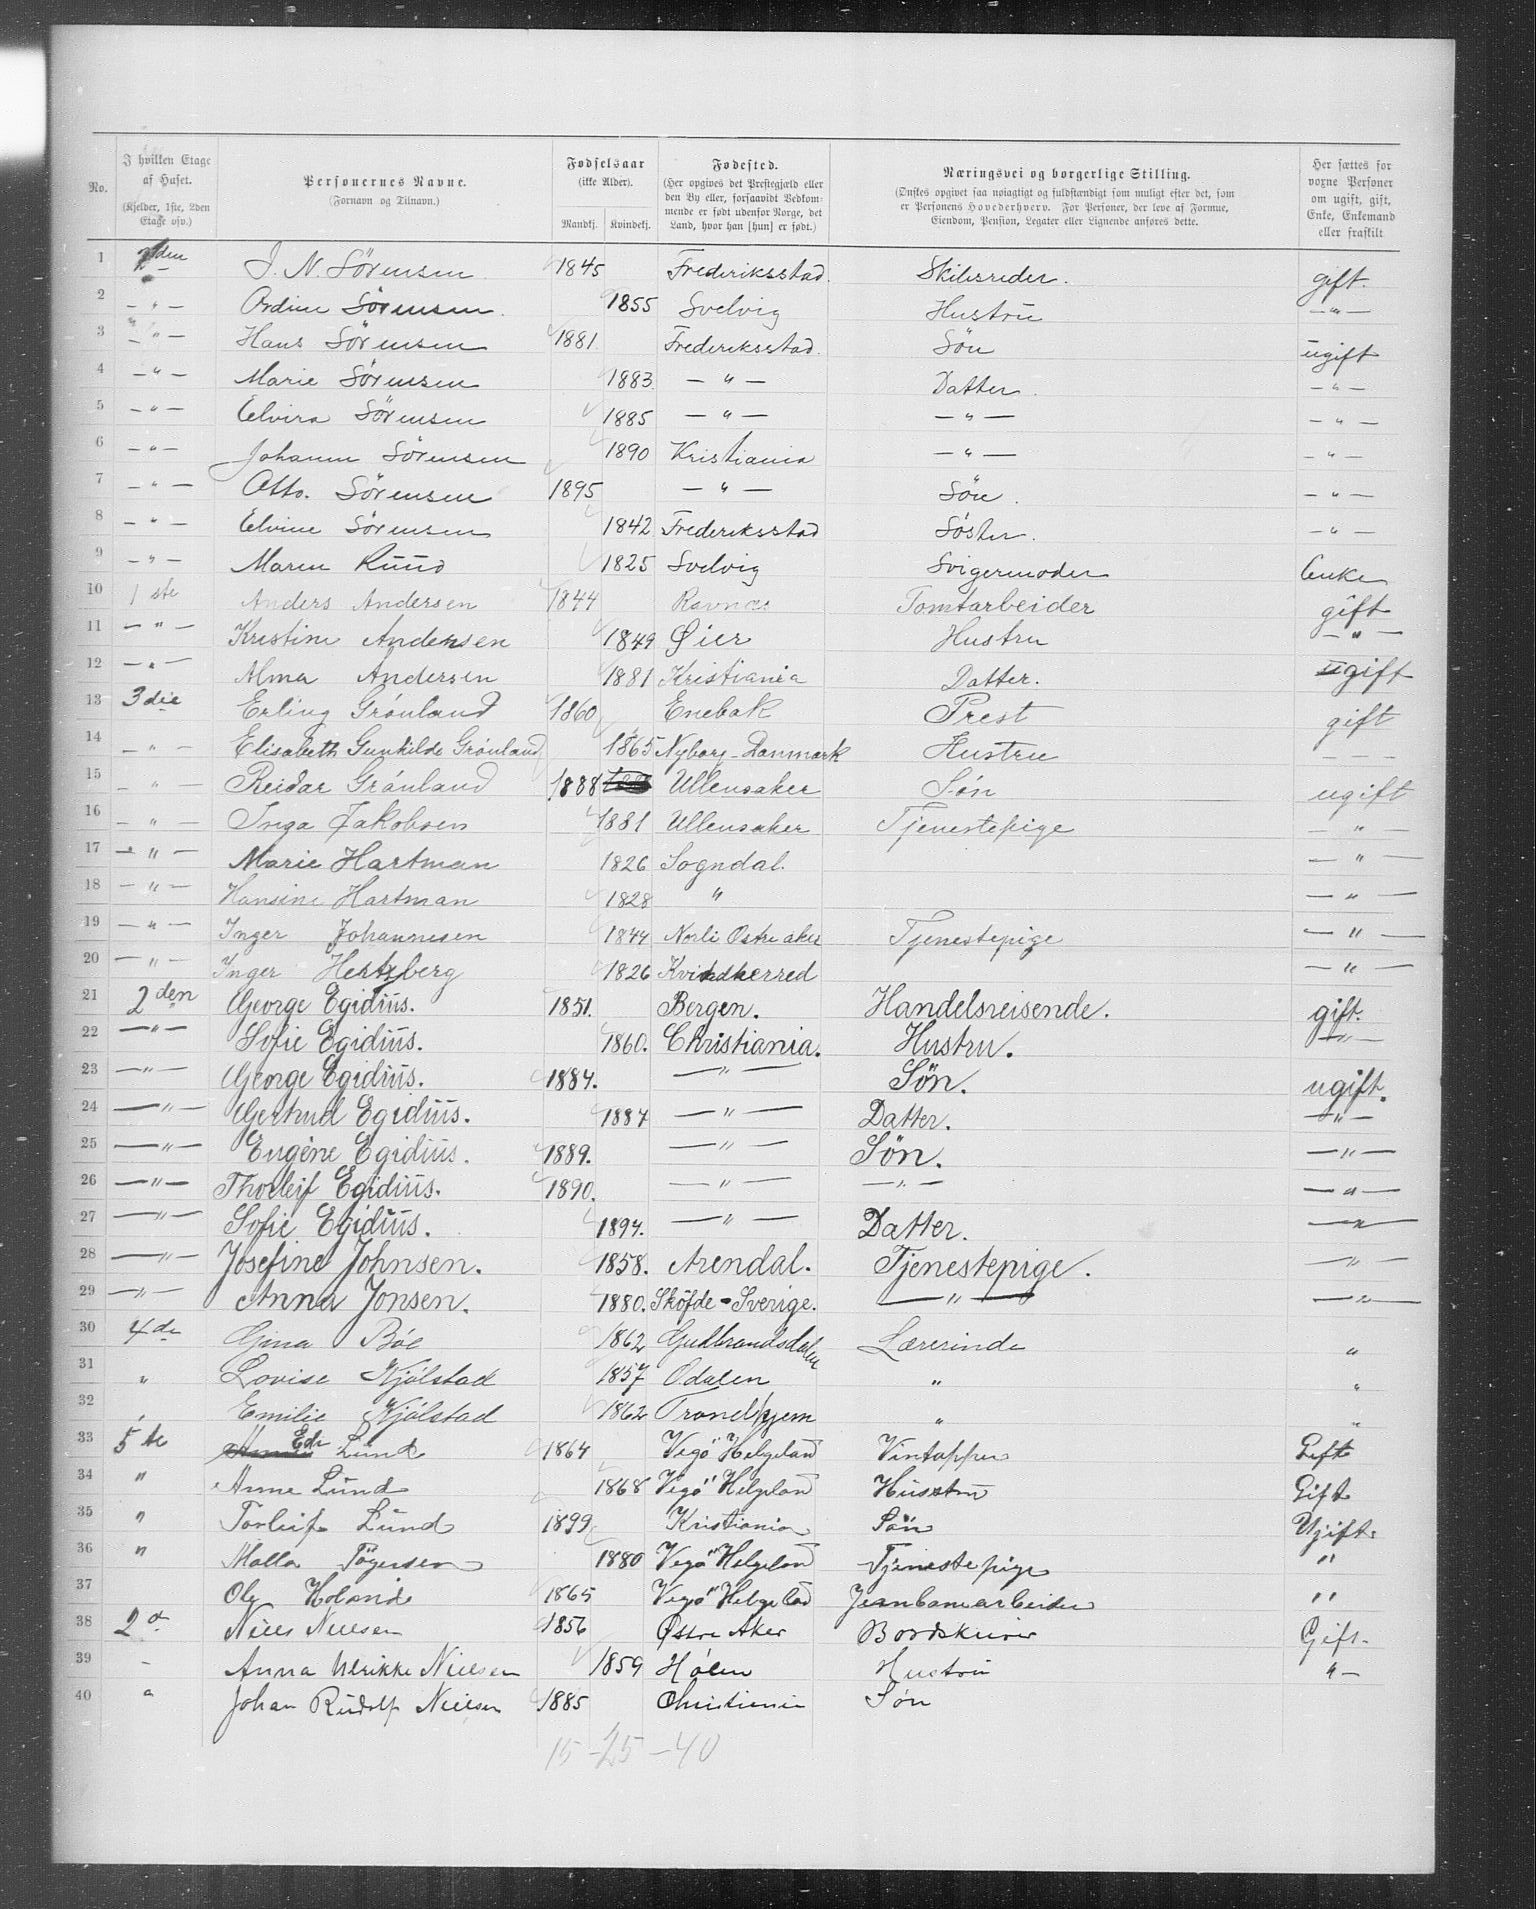 No. | I hvilken Etage af Huset. (Kjelder, 1ste, 2den Etage osv.) | Personernes Navne. (Fornavn og Tilnavn.) | Fødselsaar (ikke Alder). Mandkj. Kvindekj. | Fødested. (Her opgives det Prestegjæld eller den By eller, forsaavidt Vedkommende er født udenfor Norge, det Land, hvor han [hun] er født.) | Næringsvei og borgerlige Stilling. (Ønskes opgivet saa nøiagtigt og fuldstændigt som muligt efter det, som er Personens Hovederhverv. For Personer, der leve af Formue, Eiendom, Pension, Legater eller Lignende anføres dette. | Her sættes for voxne Personer om ugift, gift, Enke, Enkemand eller fraskilt
1 2den J. N. Sörensen 1845 Frederiksstad. Skibsreder. gift.
2 — " — Ordine Sörensen. 1855 Svelvig Hustru — " —
3 — " — Hans Sörensen 1881 Frederiksstad. Sön ugift
4 — " — Marie Sörensen 1883 — " — Datter. — " —
5 — " — Elvira Sörensen 1885 — " — — " — — " —
6 — " — Johanne Sörensen 1890 Kristiania — " — — " —
7 — " — Otto. Sörensen 1895 — " — Sön. — " —
8 — " — Elvine Sörensen 1842 Frederiksstad Söster. — " —
9 — " — Maren Ruud 1825 Svelvig Svigermoder Enke
10 1ste Anders Andersen 1844 Ravnæs Tomtarbeider gift
11 — " — Kristine Andersen 1849 Øier Hustru — " —
12 — " — Alma Andersen 1881 Kristiania Datter. ugift
13 3die Erling Grönland 1860 Enebak Prest gift
14 — " — Elisabeth Gunhilde Grönland 1865 Nyborg - Danmark Hustru — — —
15 — " — Reidar Grönland 1888 Ullensaker Sön ugift
16 — " — Inga Jakobsen 1881 Ullensaker Tjenestepige — " —
17 — " — Marie Hartman 1826 Sogndal. — " —
18 — " — Hansine Hartman 1828 " — " —
19 — " — Inger Johannesen 1844 Norli Ostre aker Tjenestepige — " —
20 — " — Inger Hertzberg 1826 Kvindherred — " —
21 2den George Egidius. 1851. Bergen. Handelsreisende. gift.
22 — " — Sofie Egidius. 1860. Christiania. Hustru. — " —
23 — " — George Egidius. 1884. — " — Sön. ugift.
24 — " — Gertrud Egidius. 1887 — " — Datter. — " —
25 — " — Eugène Egidius. 1889. — " — Sön. — " —
26 — " — Thorleif Egidius. 1890. — " — — " — — " —
27 — " — Sofie Egidius. 1894. — " — Datter. — " —
28 — " — Josefine Johnsen. 1858. Arendal. Tjenestepige. — " —
29 — " — Anna Jonsen. 1880. Sköfde - Sverige. — " — — " —
30 4de Gina Böe 1862 Gudbrandsdalen Lærerinde "
31 " Lovise Kjölstad 1857 Odalen " "
32 " Emilie Kjölstad 1862 Trondhjem " "
33 5te Edv Lund 1864 Vegö Helgeland Vintapper Gift
34 " Anne Lund 1868 Vegö Helgeland Husstru Gift
35 " Torleif Lund 1899 Kristiania Sön Ugift.
36 " Malla Tögersen 1880 Vegö Helgeland Tjenestepige "
37 Ole Holand 1865 Vegö Helgeland Jernbanearbeider "
38 2d Niels Nielsen 1856 Østre Aker Bordskriver Gift.
39 - Anna Ulrikke Nielsen 1859 Hölen Hustru " —
40 " Johan Rudolf Nielsen 1885 Christiania Sön
15 - 25 - 40